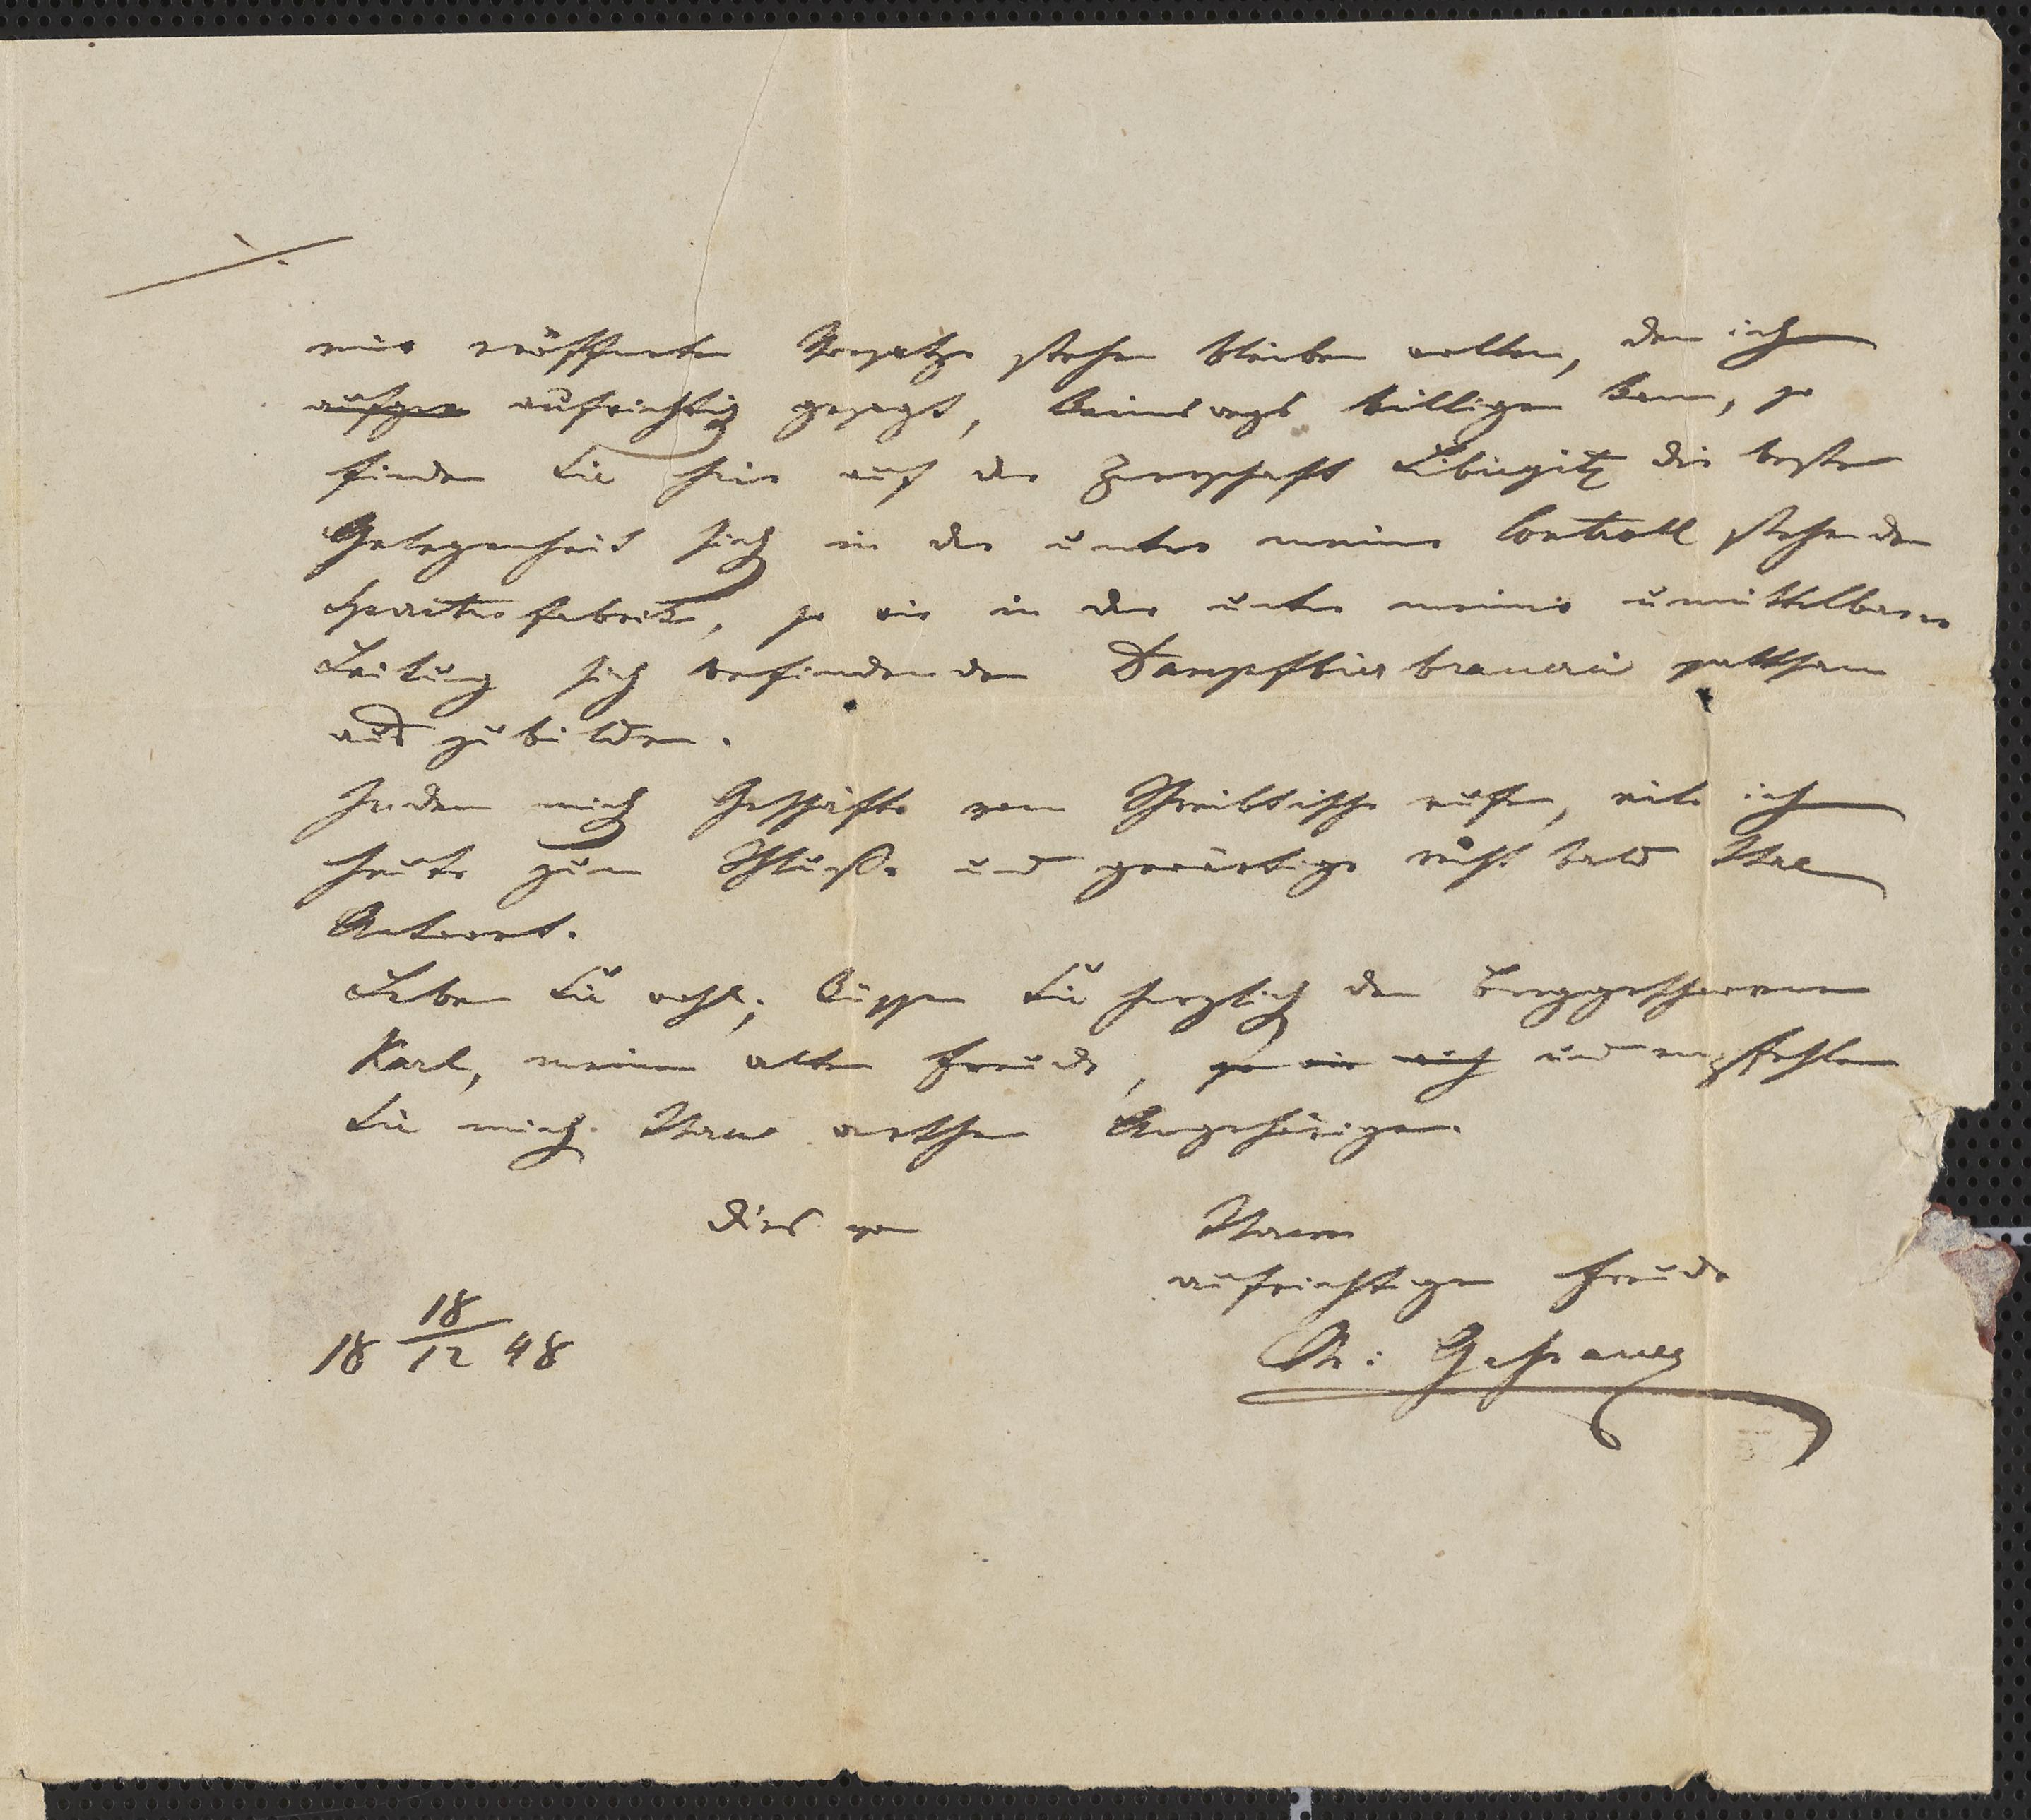 ./.
mir eröffneten Vorsatze stehen bleiben wollen, den ich
aufger aufrichtig gesagt, keineswegs billigen kann, so
finden Sie hier auf der Herrschaft Libiegitz die beste
Gelegenheit sich in der unter meiner Controll stehenden
fabrik, so wie in der unter meiner unmittelbaren
Leitung sich befindenden Dampfbierbrauerei sattsam
aus zu bilden.
Indem mich Geschäfte vom Schreibtische rufen, eile ich
heute zum Schluße und gewärtige recht bald Ihre
Antwort.
Leben Sie wohl; küssen Sie herzlich den Berggeschwornen
Karl, meinen alten Freund, so wie mich und empfehlen
Sie mich Ihren werthen Angehörigen.
Dies von Ihrem
aufrichtigen Freunde
18 18/12 48